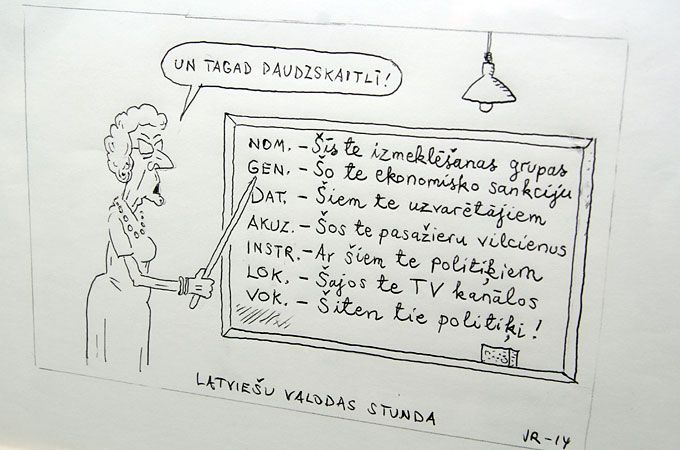 UN TAGAD DAUDZSKAITLĪ!
NOM. - Šīs te izmeklēšanas grupas
GEN. - Šo te ekonomisko sankciju
DAT. - Šiem te uzvarētājiem
AKUZ. - Šos te pasažieru vilcienus
INSTR. - Ar šiem te politiķiem
LOK. - Šajos te TV kanālos
VOK. - Šiten tie politiķi!
LATVIEŠU VALODAS STUNDA
JR-14